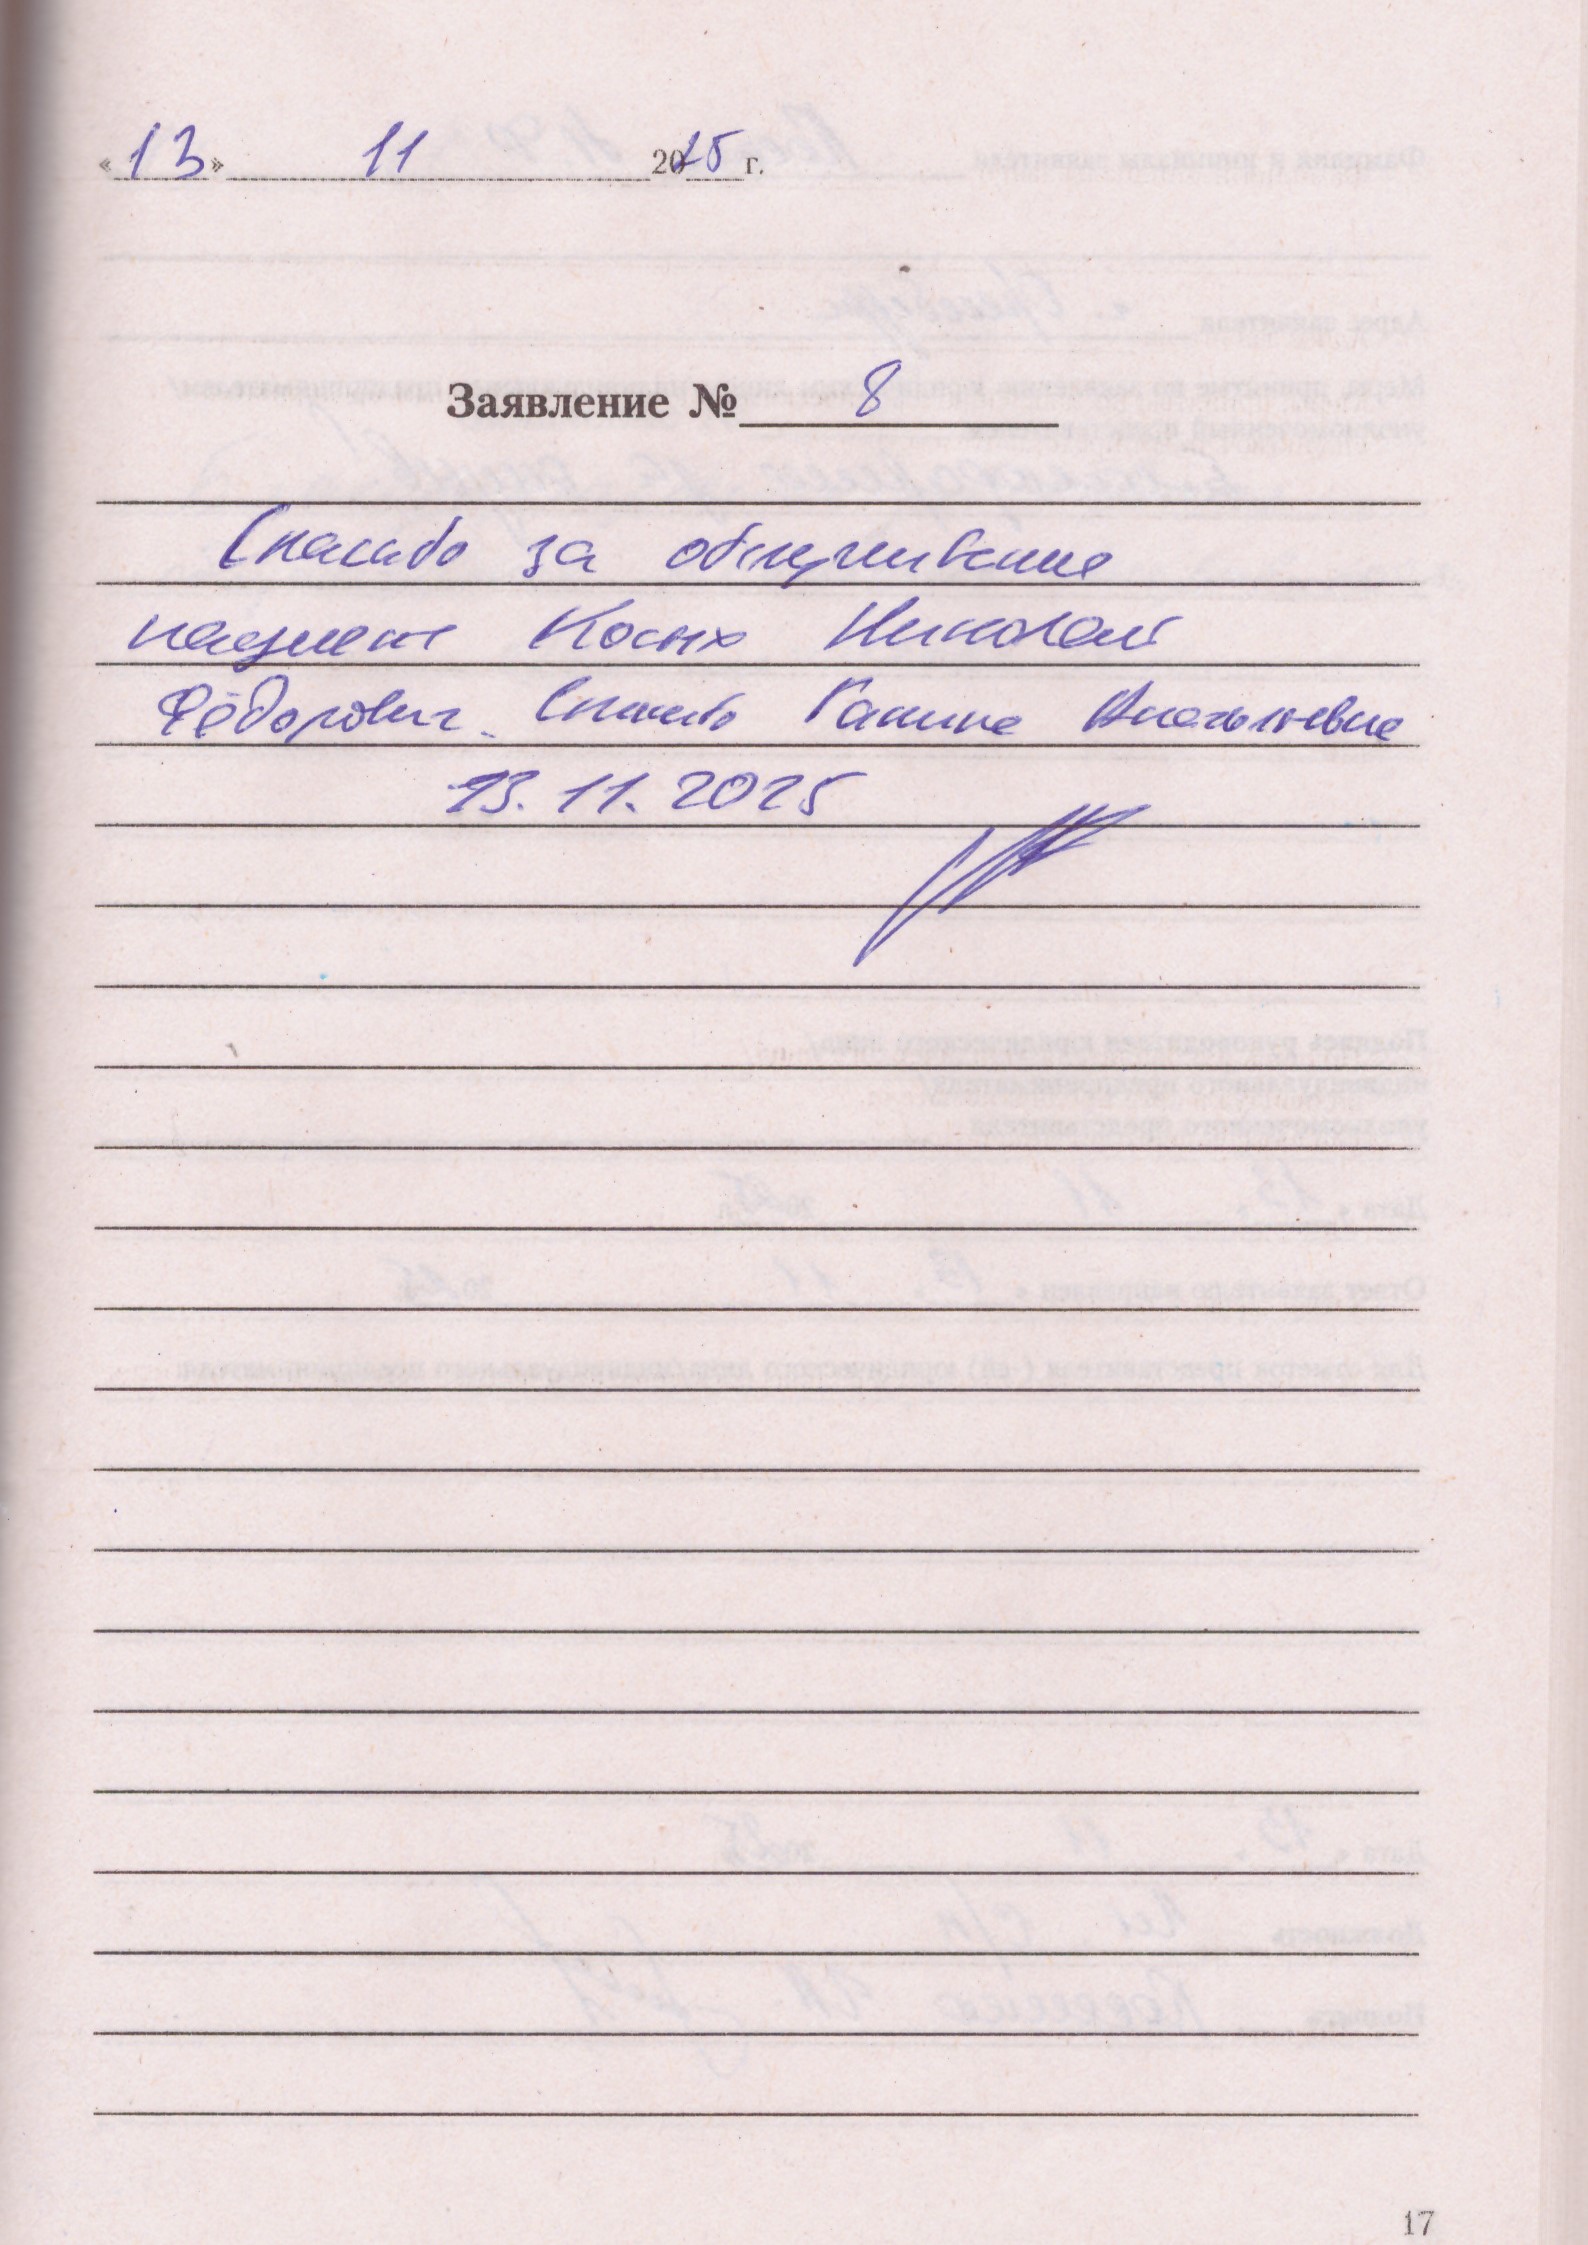 «13» 11 2025 г.
Заявление № 8
Спасибо за обслуживание
пациент Косых Николай
Фёдорович. Спасибо Галине Анатольевне
13.11.2025
17